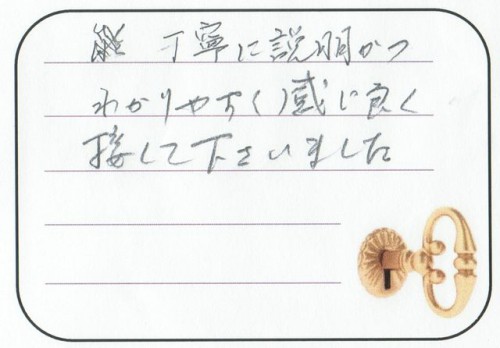 丁寧に説明かつ
わかりやすく感じ良く
接して下さいました